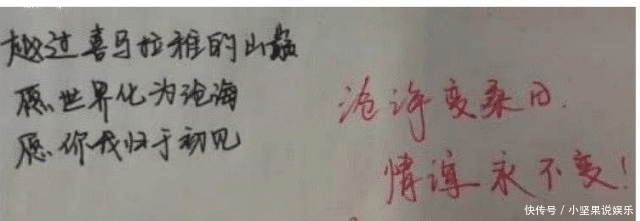 越过喜马拉雅的山巅
愿世界化为沧海
愿你我归于初见
沧海变桑田.
情谊永不变!
快传号 / 小坚果说娱乐